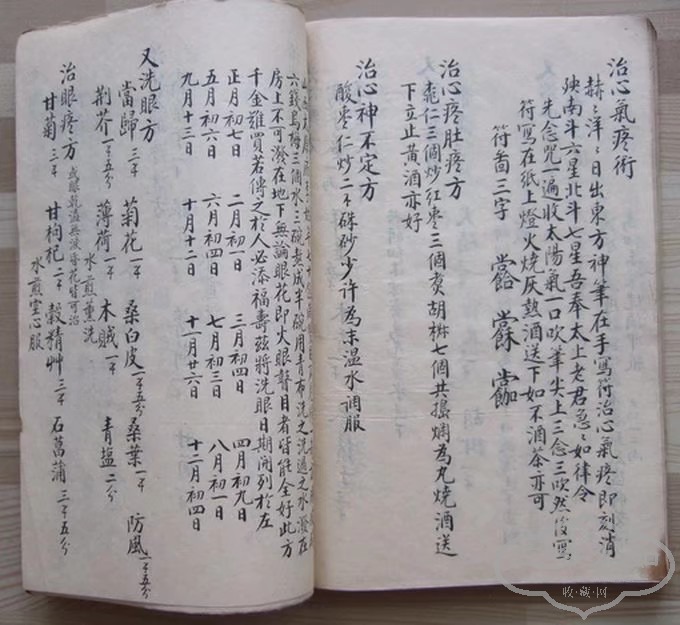 治心氣疼術
赫〻洋〻日出東方神筆在手寫符治心氣疼即刻消
南斗六星北斗七星吾奉太上老君急〻如律令
先念咒一遍收太陽氣一口吹筆尖上三念三吹然後寫
符寫在紙上燈火燒灰熱酒送下如不酒茶亦可
符啚三字
治心疼肚疼方
桃仁三個炒紅枣三個煑胡椒七個共搗爛為丸燒酒送
下立止黄酒亦好
治心神不定方
酸枣仁炒二硃砂少許為末温水調服
六錢烏梅三個水三碗煑成半碗用青布洗之洗過之水潑在
房上不可潑在地下無論眼花即火眼瞽目者皆能全好此方
千金难買若傳之於人必添福壽兹將洗眼日期開列於左
正月初七日 二月初一日 三月初四日 四月初九日
五月初六日 六月初四日 七月初三日 八月初一日
九月十三日 十月十二日 十一月廿六日 十二月初四日
又洗眼方
當歸三 菊花一 桑白皮一五分 桑葉一 防風一五分
荆芥一五分 薄荷一 木賊一 青塩二分
水煎薰洗
治眼疼方 或眼乾澁無淚昏花皆可治
甘菊三 甘枸杞二 穀精艸三 石菖蒲三五分
水煎空心服
收·藏·网